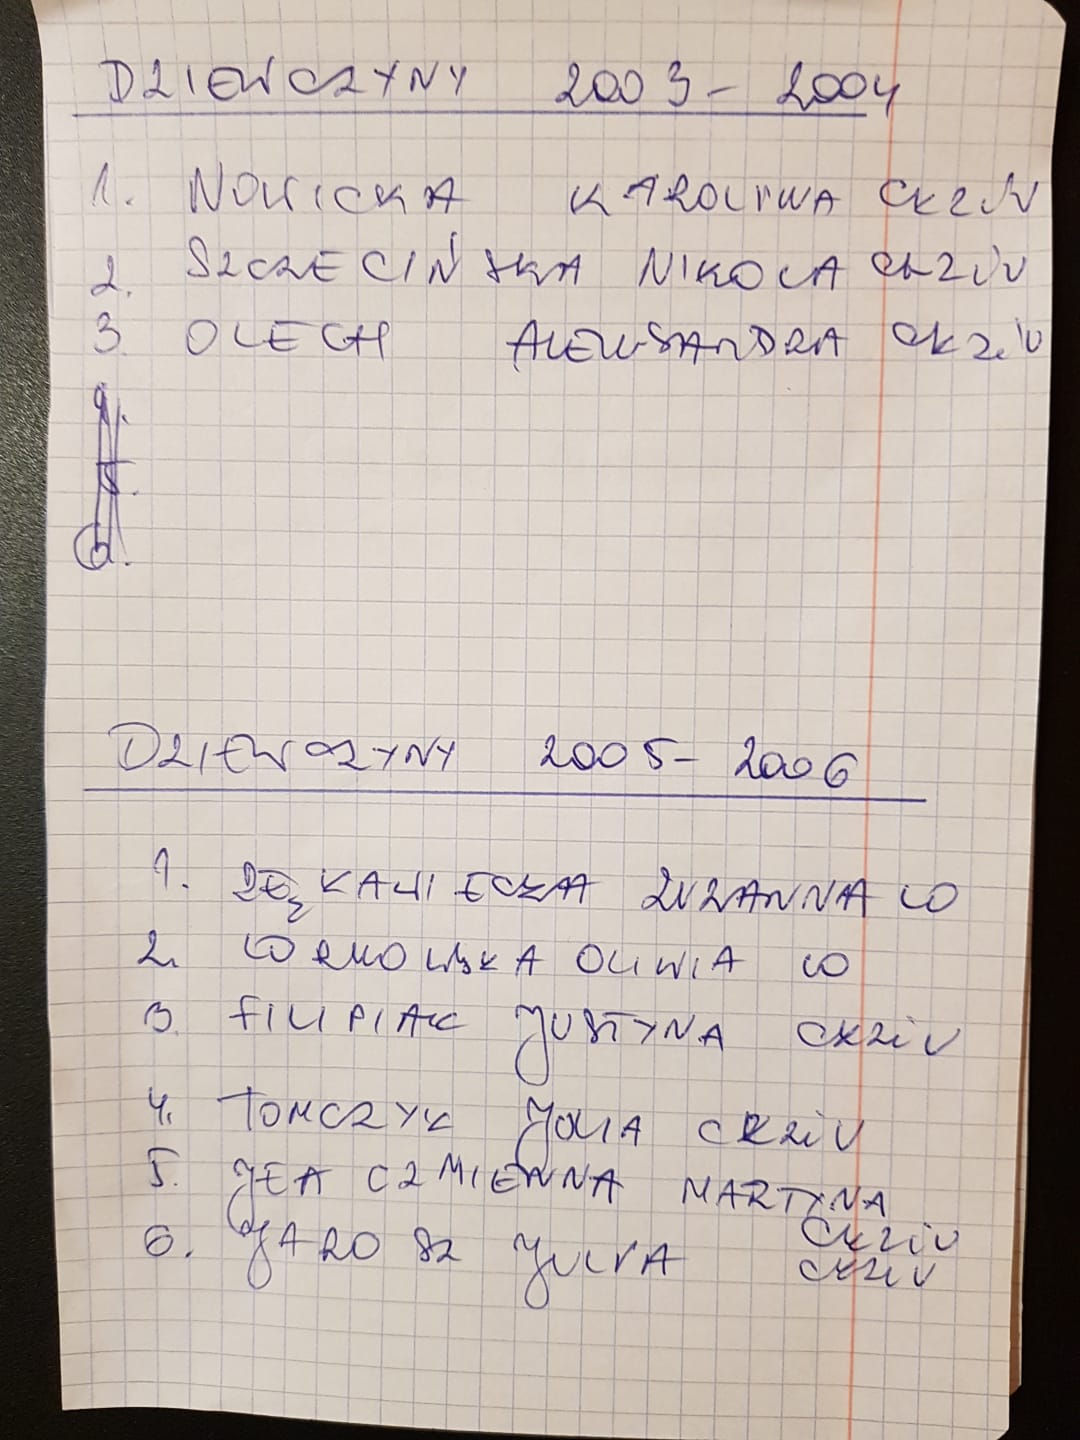 DZIEWCZYNY 2003 - 2004
1. NOWICKA KAROLINA CKZiU
2. SZCZECIŃSKA NIKOLA CKZiU
3. OLECH ALEKSANDRA CKZiU
4.
5.
6.
DZIEWCZYNY 2005 - 2006
1. ZUZANNA LO
2. OLIWIA LO
3. FILIPIAK JUSTYNA CKZiU
4. TOMCZYK JULIA CKZiU
5. JĘCZMIENNA MARTYNA CKZiU
6. JAROSZ JULIA CKZiU